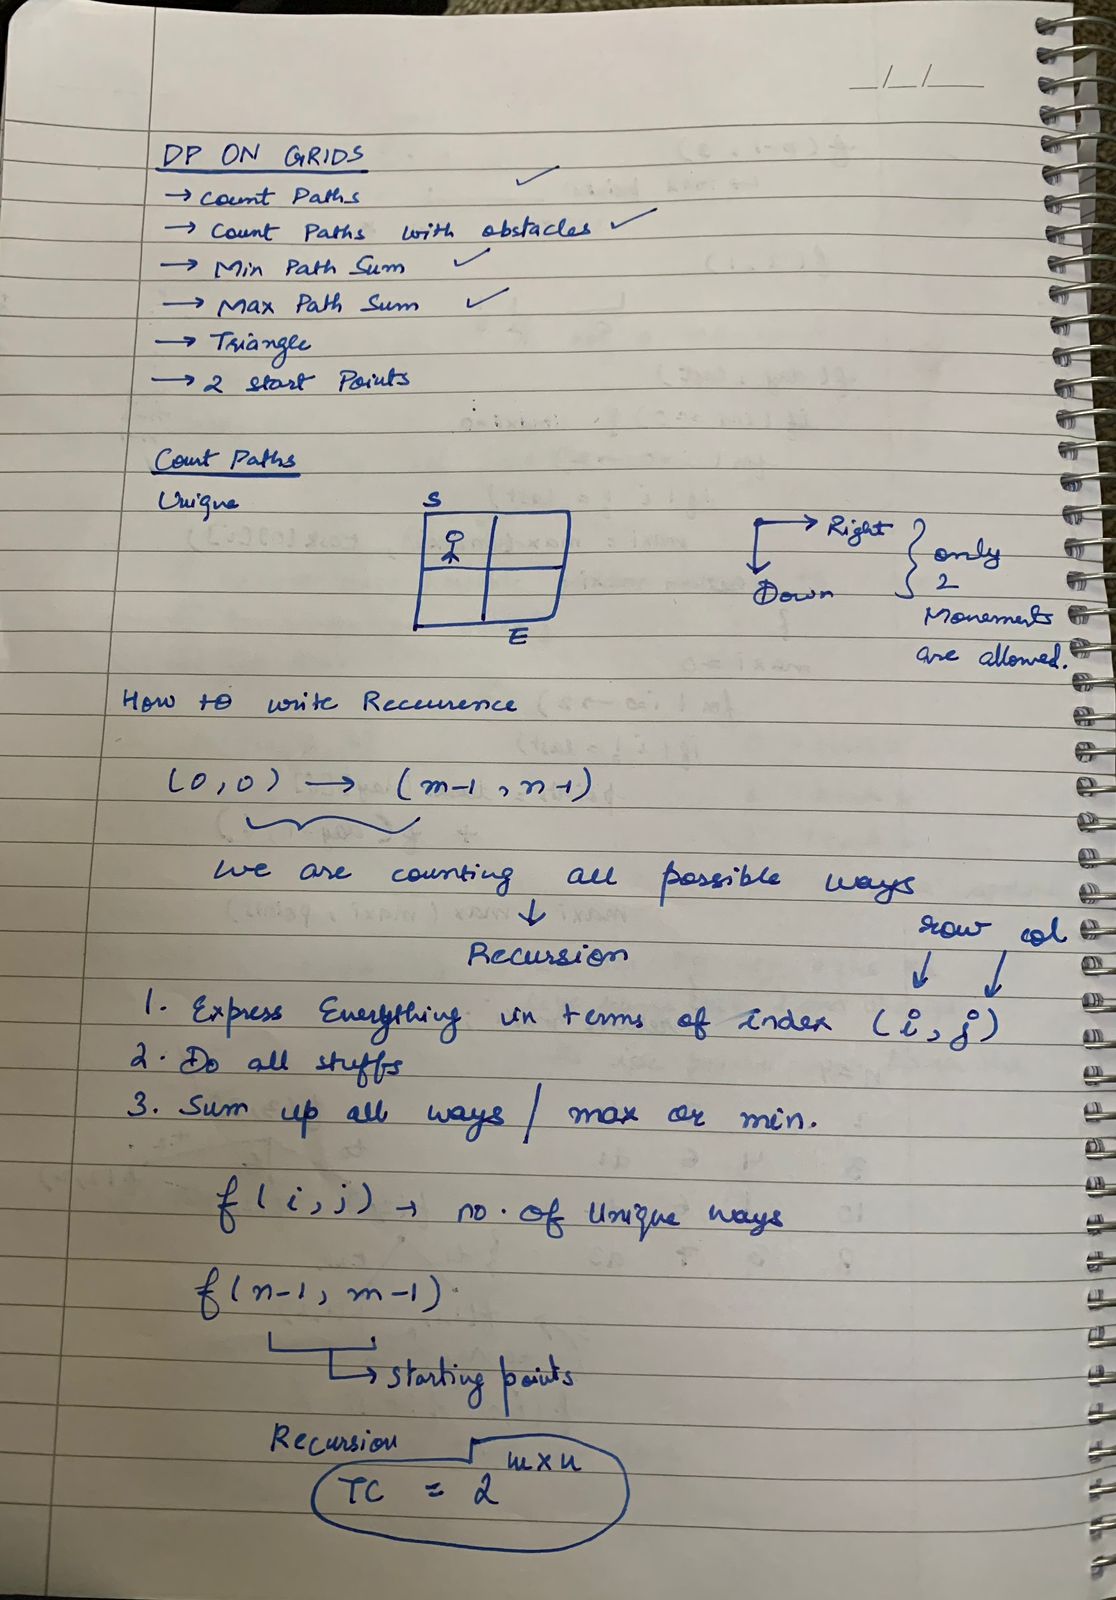 __/__/____
DP ON GRIDS
→ Count Paths ✓
→ Count Paths with obstacles ✓
→ Min Path Sum ✓
→ Max Path Sum ✓
→ Triangle
→ 2 start Points
Count Paths
Unique
S
E
→ Right
Down
only
2
Movements
are allowed.
How to write Recurrence
(0,0) → (m-1, n-1)
We are counting all possible ways
↓
row col
Recursion
1. Express Everything in terms of index (i, j)
2. Do all stuffs
3. Sum up all ways / max or min.
f(i, j) → no. of Unique ways
f(n-1, m-1)
→ starting points
Recursion
TC = 2^m×n